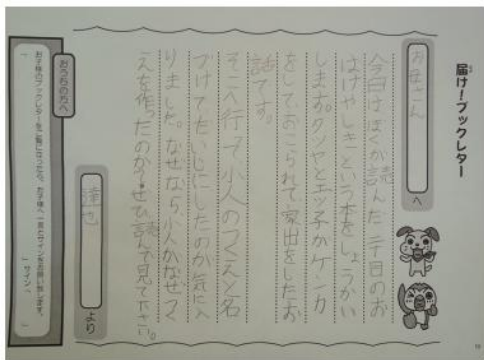 届け！ブックレター
お母さんへ
今日はぼくが読んだ二丁目のお
ばけやしきという本をしょうかい
します。タツヤとエツ子がケンカ
をして、おこられて、家出をしたお
話です。
そこへ行って小人のつくえと名
づけてだいじにしたのが気に入
りました。なぜなら、小人がなぜつく
えを作ったのか、ぜひ読んで見て下さい。
達也より
おうちの方へ
お子様のブックレターをご覧になったら、お子様へ一言とサインをお願い致します。
「　　　　」サインへ　　　　」